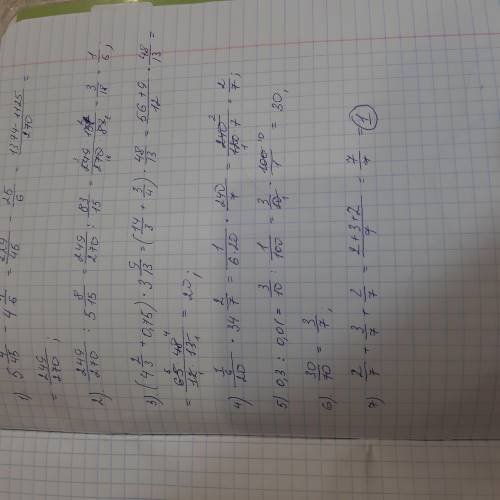 1) 5 4/45 - 4 1/6 = 229/45 - 25/6 = (1374-1125)/270 =
= 249/270 ;
2) 249/270 : 5 8/15 = 249/270 : 83/15 = (249 · 15)/(270 · 83) = 3/18 = 1/6 ;
3) (4 2/3 + 0,75) · 3 9/13 = (14/3 + 3/4) · 48/13 = (56+9)/12 · 48/13 =
= (65 · 48)/(12 · 13) = 20 ;
4) (1/6)/20 · 34 2/7 = 1/(6·20) · 240/7 = 240/(120 · 7) = 2/7 ;
5) 0,3 : 0,01 = 3/10 : 1/100 = 3/10 · 100/1 = 30,
6) 30/70 = 3/7,
7) 2/7 + 3/7 + 2/7 = (2+3+2)/7 = 7/7 = 1